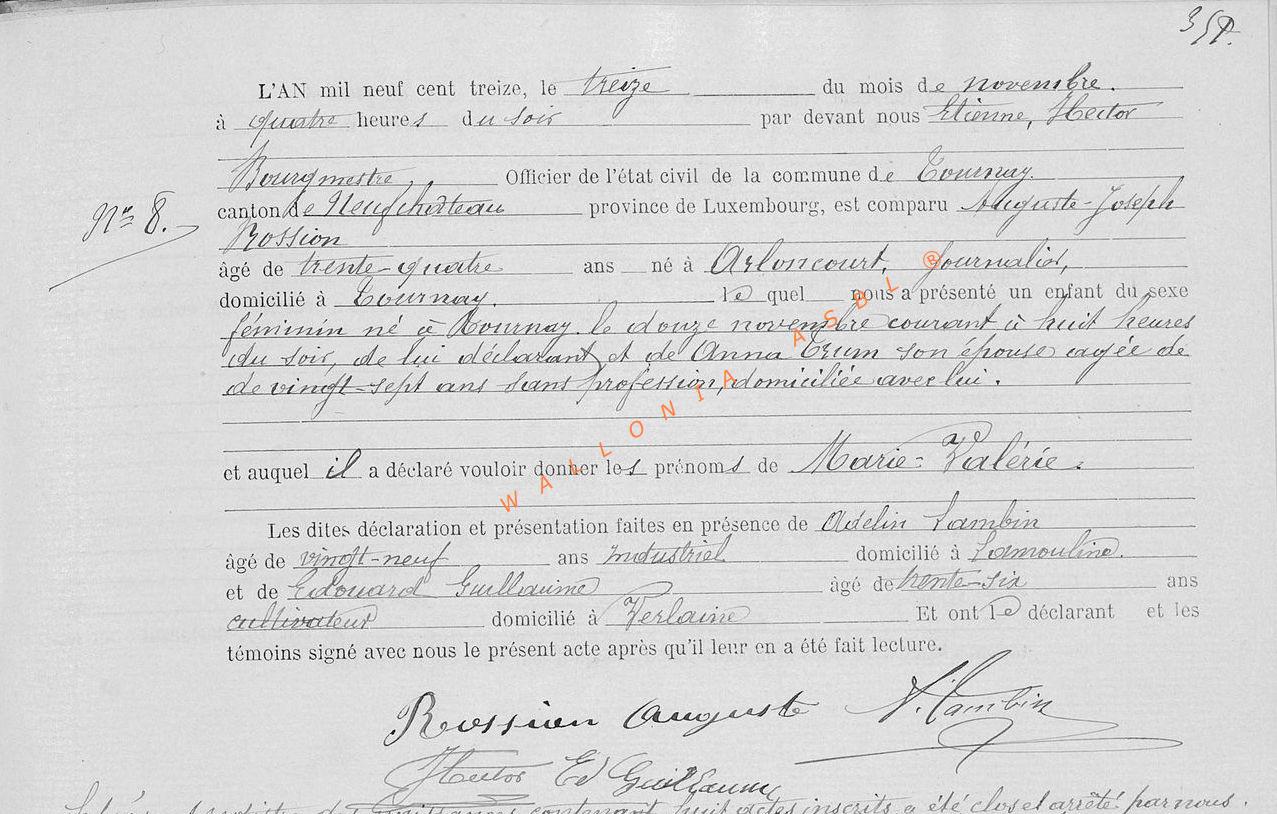 L'AN mil neuf cent treize, le treize du mois de novembre.
à quatre heures du soir par devant nous Etienne, Hector
Bourgmestre, Officier de l'état civil de la commune de Tournay
canton de Neufchâteau province de Luxembourg, est comparu Auguste-Joseph
N° 8.
Rossion
âgé de trente-quatre ans né à Arloncourt, Journalier,
domicilié à Tournay. le quel nous a présenté un enfant du sexe
féminin né à Tournay. le douze novembre courant à huit heures
du soir, de lui déclarant et de Anna Crum son épouse agée de
de vingt-sept ans sans profession, domiciliée avec lui.
et auquel il a déclaré vouloir donner les prénoms de Marie-Valérie.
Les dites déclaration et présentation faites en présence de Adelin Lambin
âgé de vingt-neuf ans industriel domicilié à Lamouline.
et de Edouard Guillaume âgé de trente-six ans
cultivateur domicilié à Verlaine Et ont le déclarant et les
témoins signé avec nous le présent acte après qu'il leur en a été fait lecture.
Rossion Auguste A. Lambin
Hector Ed Guillaume
contenant huit actes inscrits a été clos et arrêté par nous.
WALLONIA ASBL ®